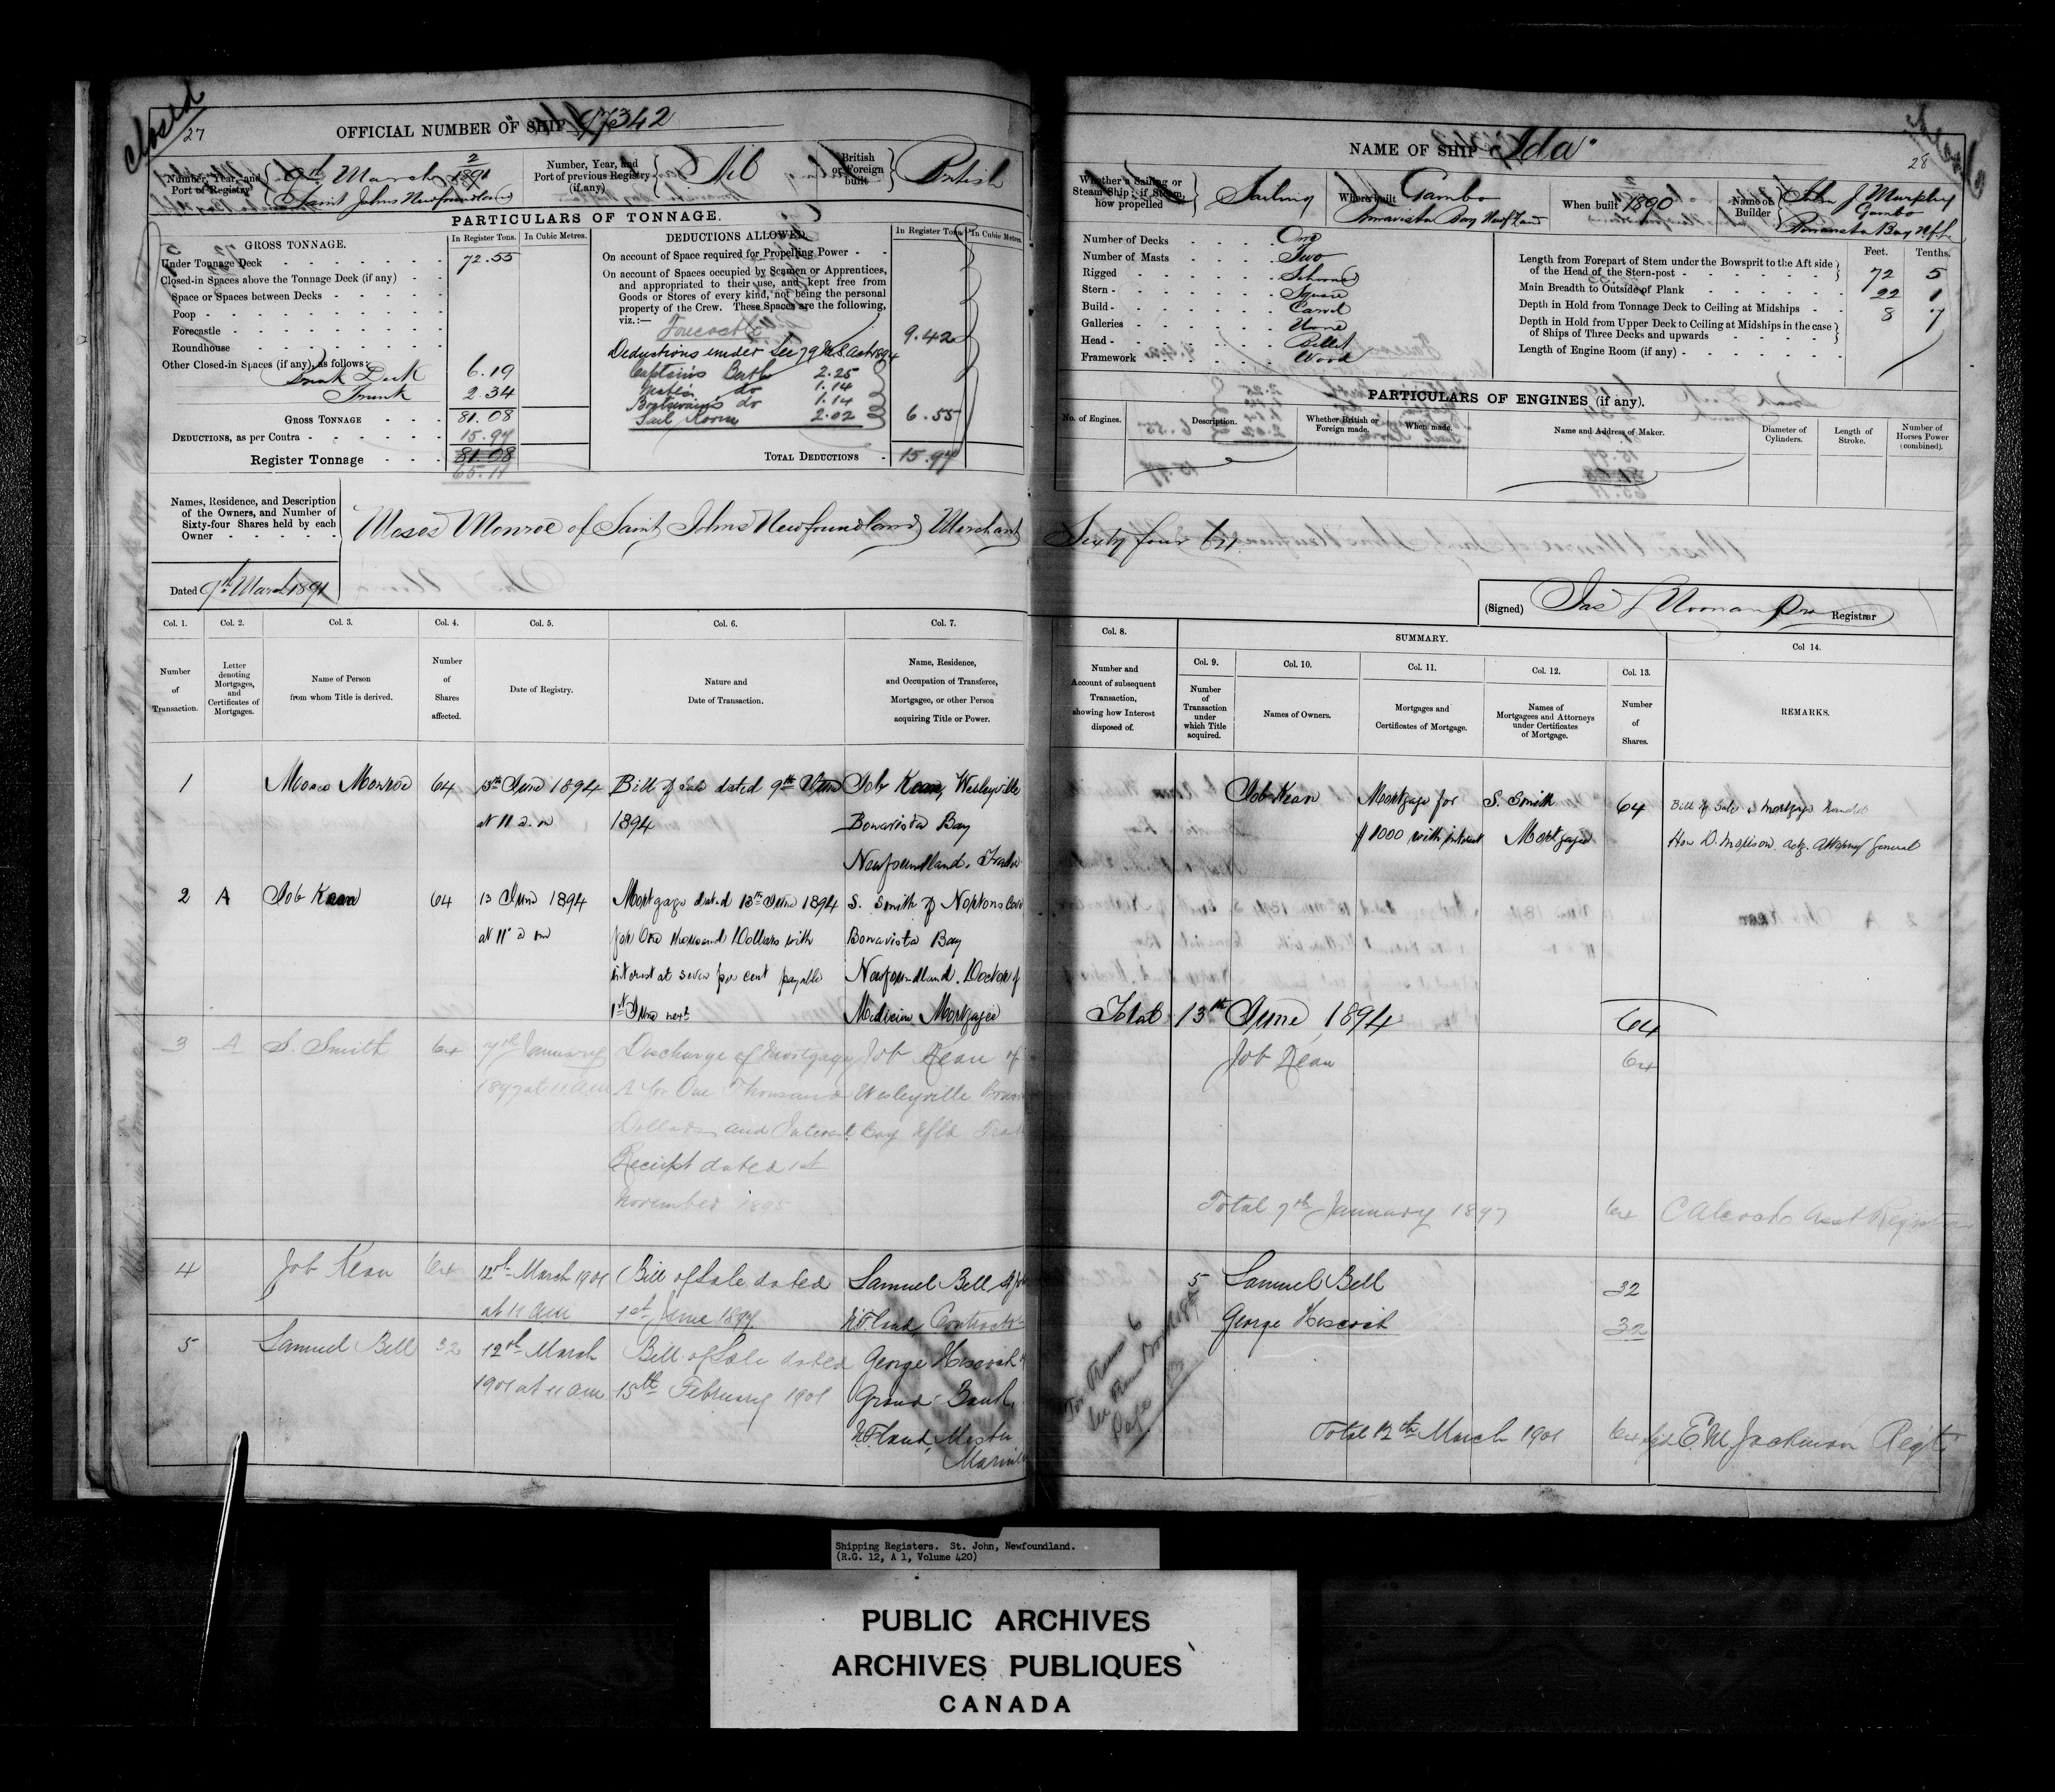 Closed
27
OFFICIAL NUMBER OF SHIP 97342
Number, Year, and Port of Registry
2/1891
9th March
Saint Johns Newfoundland
Number, Year, and Port of previous Registry (if any)
Nil
British or Foreign built
British
PARTICULARS OF TONNAGE.
GROSS TONNAGE.
In Register Tons.
In Cubic Metres.
Under Tonnage Deck 72.55
Closed-in Spaces above the Tonnage Deck (if any)
Space or Spaces between Decks
Poop
Forecastle
Roundhouse
Other Closed-in Spaces (if any), as follows:
Break Deck 6.19
Trunk 2.34
GROSS TONNAGE 81.08
DEDUCTIONS, as per Contra 15.97
Register Tonnage 81.08
65.11
DEDUCTIONS ALLOWED.
In Register Tons.
In Cubic Metres.
On account of Space required for Propelling Power
On account of Spaces occupied by Seamen or Apprentices,
and appropriated to their use, and kept free from
Goods or Stores of every kind, not being the personal
property of the Crew. These Spaces are the following,
viz.:—
Forecastle 9.42
Deductions under Sec 79 M.S. Act 1894
Captains Berth 2.25
do 1.14
Boatswains do 1.14
Sail Room 2.02
6.55
TOTAL DEDUCTIONS 15.97
Names, Residence, and Description
of the Owners, and Number of
Sixty-four Shares held by each
Owner
Moses Monroe of Saint Johns Newfoundland Merchant
Dated 9th March 1891
Col. 1. Col. 2. Col. 3. Col. 4. Col. 5. Col. 6. Col. 7.
Number of Transaction.
Letter denoting Mortgages, and Certificates of Mortgages.
Name of Person from whom Title is derived.
Number of Shares affected.
Date of Registry.
Nature and Date of Transaction.
Name, Residence, and Occupation of Transferee, Mortgagee, or other Person acquiring Title or Power.
1 Moses Monroe 64 13th June 1894 Bill of Sale dated 9th June Job Kean, Wesleyville
at 11 a.m 1894 Bonavista Bay
Newfoundland. Trader
2 A Job Kean 64 13 June 1894 Mortgage dated 13th June 1894 S. Smith of Nortons Cove
at 11 a m for One thousand Dollars with Bonavista Bay
interest at seven per cent payable Newfoundland. Doctor of
1st June next Medicine Mortgagee
3 A S. Smith 64 7th January Discharge of Mortgage Job Kean of
1897 at 11 am A for One Thousand Wesleyville
Dollars and Interest Bay Nfld
Receipt dated 1st
November 1895
4 Job Kean 64 12th March 1901 Bill of Sale dated Samuel Bell
at 11 am 1st June 1899 N'Fland, Contractor
5 Samuel Bell 32 12th March Bill of Sale dated George Hiscock
1901 at 11 am 15th February 1901 Grand Bank,
N'Fland, Master
Mariner
28
NAME OF SHIP "Ada"
Whether a Sailing or Steam Ship; if Steam, how propelled
Sailing
Where built
Gambo
Bonavista Bay Newf'land
When built 1890
Name of Builder
John J Murphy
Gambo
Bonavista Bay Nfld
Number of Decks One
Number of Masts Two
Rigged Schooner
Stern Square
Build Carvel
Galleries None
Head Billet
Framework Wood
Feet. Tenths.
Length from Forepart of Stem under the Bowsprit to the Aft side
of the Head of the Stern-post 72 5
Main Breadth to Outside of Plank 22 1
Depth in Hold from Tonnage Deck to Ceiling at Midships 8 7
Depth in Hold from Upper Deck to Ceiling at Midships in the case
of Ships of Three Decks and upwards
Length of Engine Room (if any)
PARTICULARS OF ENGINES (if any).
No. of Engines.
Description.
Whether British or Foreign made.
When made.
Name and Address of Maker.
Diameter of Cylinders.
Length of Stroke.
Number of Horses Power (combined).
Sixty four 64
(Signed) Registrar
Col. 8.
SUMMARY.
Col. 9. Col. 10. Col. 11. Col. 12. Col. 13. Col 14.
Number and Account of subsequent Transaction, showing how Interest disposed of.
Number of Transaction under which Title acquired.
Names of Owners.
Mortgages and Certificates of Mortgage.
Names of Mortgagees and Attorneys under Certificates of Mortgage.
Number of Shares.
REMARKS.
Job Kean Mortgage for S. Smith 64 Bill of Sale & Mortgage handed
$1000 with interest Mortgagee Hon D. Morison. actg. Attorney General
Total 13th June 1894 64
Job Kean 64
Total 7th January 1897 64 Asst Registrar
5 Samuel Bell 32
George Hiscock 32
For Trans 6
see Trans Book
Page
Total 12th March 1901 64 E.M. Jackman Regtr
Shipping Registers. St. John, Newfoundland.
(R.G. 12, A 1, Volume 420)
PUBLIC ARCHIVES
ARCHIVES PUBLIQUES
CANADA